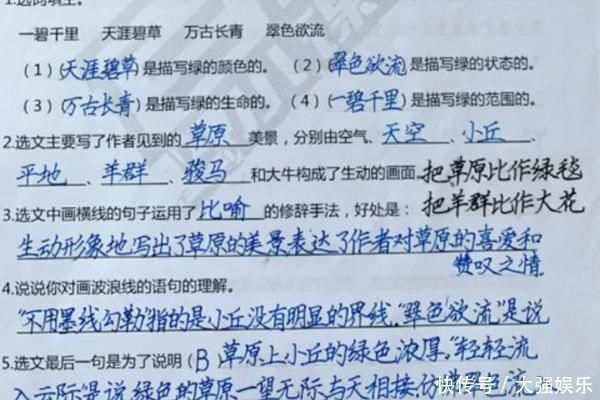 1.选词填空。
一碧千里 天涯碧草 万古长青 翠色欲流
(1)(天涯碧草)是描写绿的颜色的。 (2)(翠色欲流)是描写绿的状态的。
(3)(万古长青)是描写绿的生命的。 (4)(一碧千里)是描写绿的范围的。
2.选文主要写了作者见到的 草原 美景，分别由空气、天空、小丘、
平地、羊群、骏马 和大牛构成了生动的画面。把草原比作绿毯
3.选文中画横线的句子运用了 比喻 的修辞手法，好处是： 把羊群比作大花
生动形象地写出了草原的美景表达了作者对草原的喜爱和
赞叹之情
4.说说你对画波浪线的语句的理解。
"不用墨线勾勒"指的是小丘没有明显的界线。"翠色欲流"是说
5.选文最后一句是为了说明(B) 草原上小丘的绿色,浓厚。"轻轻流
入云际"是说,绿色的草原一望无际,与天相接,仿
快传号/大强娱乐